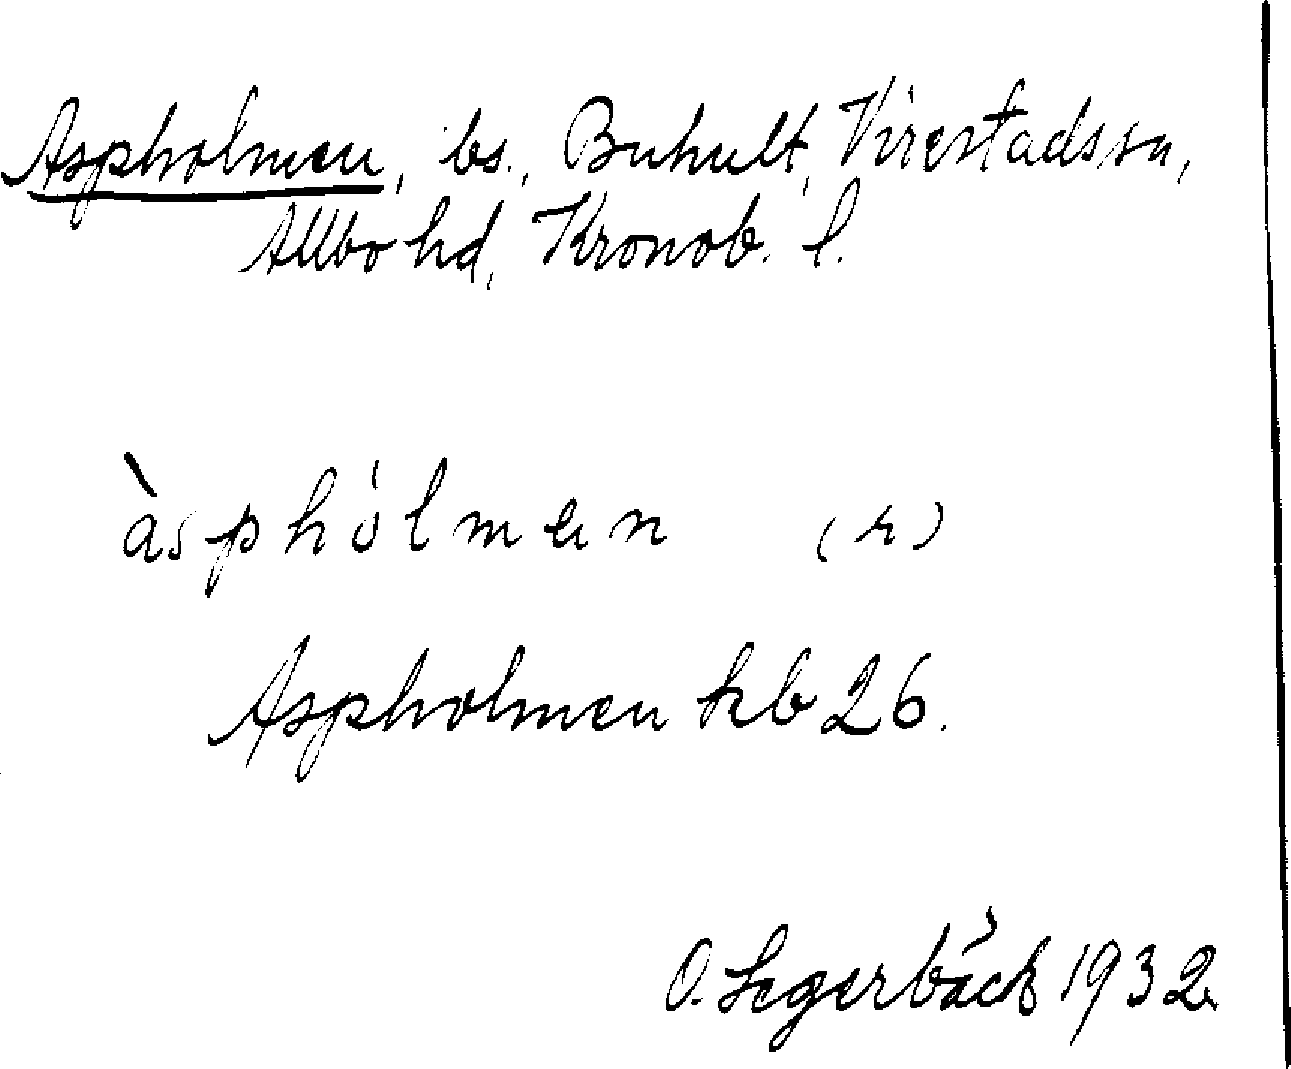 Aspholmen, bs., Buhult, Virestadssn,
Allbo hd, Kronob. l.
àsphólmen (r)
Aspholmen kb 26.
O. Segerbäck 1932